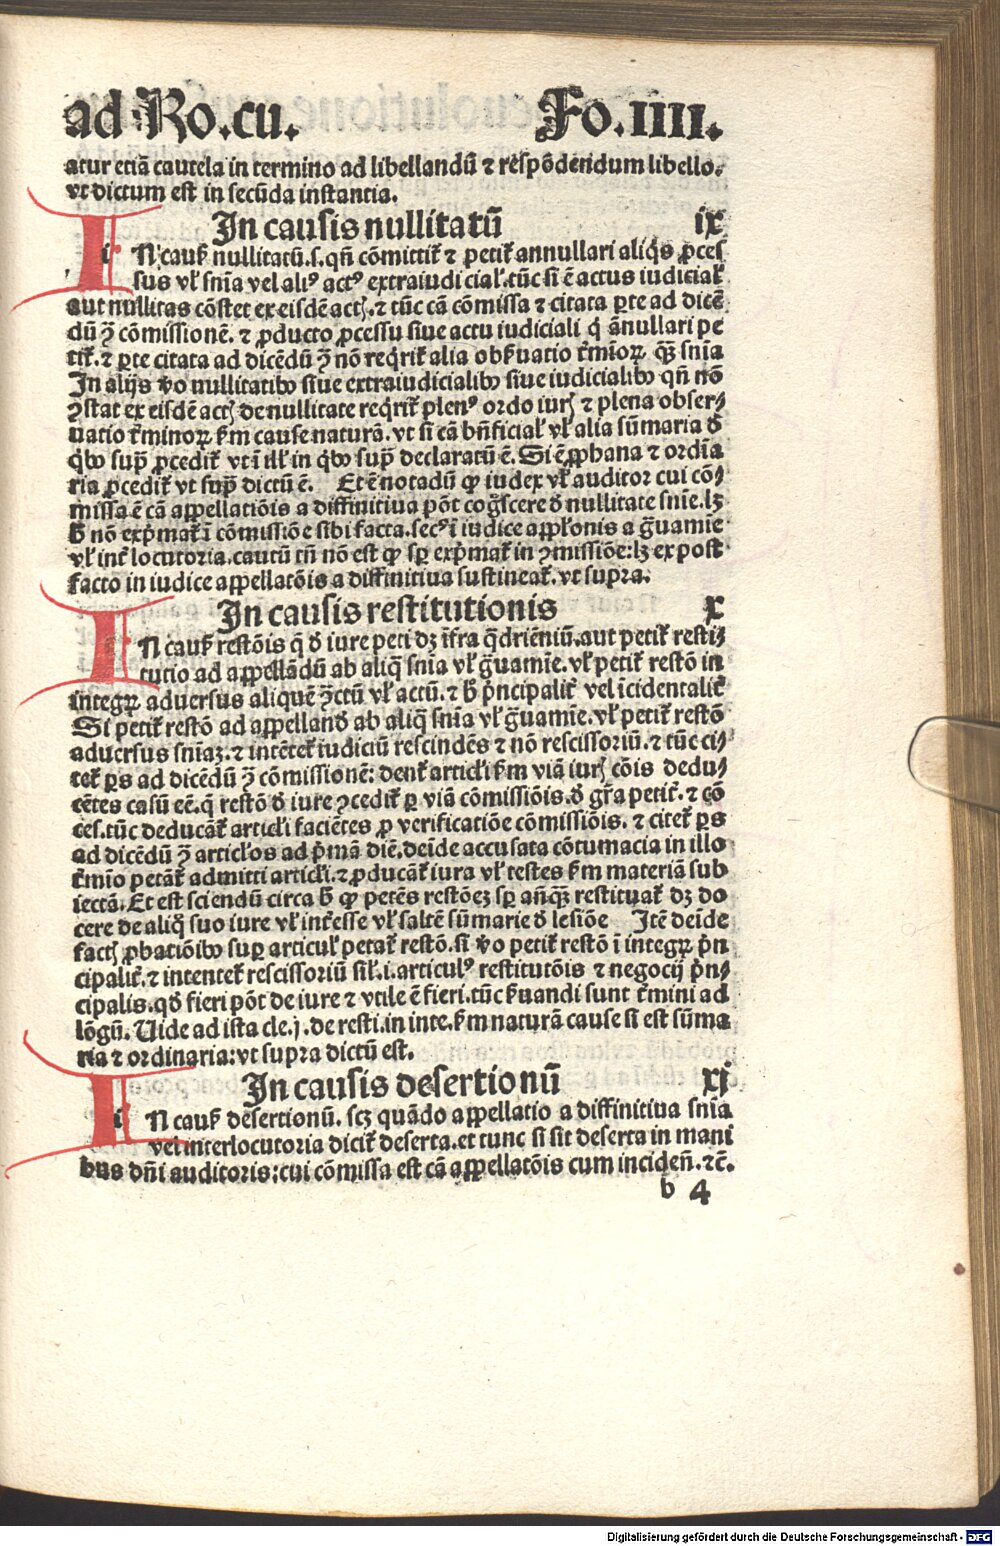 ad Ro.cu. Fo.IIII.
atur etiā cautela in termino ad libellandū ⁊ respōdendum libello.
vt dictum est in secūda instantia.
In causis nullitatū ix
IN causꝭ nullitatū.s.qñ cōmittit̃ ⁊ petit̃ annullari aliq̄s ꝓces
sus vl̓ snīa vel aliꝰ actꝰ extraiudicial̓.tūc si ē actus iudicial̓
aut nullitas cōstet ex eisdē actꝭ.⁊ tūc cā cōmissa ⁊ citata ꝑte ad dicē
dū ꝯ̄ cōmissionē.⁊ ꝓducto ꝓcessu siue actu iudiciali q̇ ānullari pe
tit̃.⁊ ꝑte citata ad dicēdū ꝯ̄ nō reqrit̃ alia obẞuatio t̃mīoꝝ qꝫ̄ snīa
In alijs ṽo nullitatibꝰ siue extraiudicialibꝰ siue iudicialibꝰ qñ nō
ꝯstat ex eisdē actꝭ de nullitate reqrit̃ plenꝰ ordo iurꝭ ⁊ plena obser⸗
uatio t̃minoꝝ ẞm cause naturā.vt si cā bñficial̓ vl̓ alia sūmaria đ
q̇bꝰ sup̃ ꝓcedit̃ vt ī ill̓ in q̇bꝰ sup̃ declaratū ē. Si ē ꝓphana ⁊ ordīa
ria ꝓcedit̃ vt sup̃ dictū ē. Et ē notādū ꝙ iudex vl̓ auditor cui cō⸗
missa ē cā appellatiōis a diffinitiua pōt cogscere đ nullitate snīe.lꝫ
ħ nō exp̃mat̃ ī cōmissiōe sibi facta.secꝰ ī iudice appl̓onis a g̃uamīe
vl̓ int̃locutoria.cautū tñ nō est ꝙ sp̄ exp̃mat̃ in ꝯmissiōe:lꝫ ex post
facto in iudice appellatōis a diffinitiua sustineat̃.vt supra.
In causis restitutionis x
IN causꝭ restōis q̄ đ iure peti dꝫ īfra q̄driēniū.aut petit̃ resti⸗
tutio ad appellādū ab aliq̄ snīa vl̓ g̃uamīe.vl̓ petit̃ restō in
integrꝝ aduersus aliquē ꝯ̄ctū vl̓ actū.⁊ ħ p̃ncipalit̃ vel īcidentalit̃
Si petit̃ restō ad appellanđ ab aliq̄ snīa vl̓ g̃uamīe.vl̓ petit̃ restō
aduersus snīaꝫ.⁊ intētet̃ iudiciū rescindēs ⁊ nō rescissoriū.⁊ tūc ci⸗
tet̃ ꝑs ad dicēdū ꝯ̄ cōmissionē: dent̃ articl̓i ẞm viā iurꝭ cōis dedu⸗
cētes casū eē.q̇ restō đ iure ꝯcedit̃ ꝑ viā cōmissiōis.đ gr̃a petit̃.⁊ cō
ces.tūc deducāt̃ articl̓i faciētes ꝓ verificatiōe cōmissiōis. ⁊ citet̃ ꝑs
ad dicēdū ꝯ̄ articl̓os ad p̃mā diē.deīde accusata cōtumacia in illo
t̃mīo petāt̃ admitti articl̓i.⁊ ꝓducāt̃ iura vl̓ testes ẞm materiā sub
iectā.Et est sciendū circa ħ ꝙ petēs restōeꝫ sp̄ añqꝫ̄ restituat̃ dꝫ do
cere de aliq̇ suo iure vl̓ int̃esse vl̓ saltē sūmarie đ lesiōe Itē deīde
factꝭ ꝓbatiōibꝰ suꝑ articul̓ petat̃ restō.si ṽo petit̃ restō ī integrꝝ p̃n
cipalit̃.⁊ intentet̃ rescissoriū sil̓.i.articulꝰ restitutōis ⁊ negocij p̃n⸗
cipalis.qđ fieri pōt de iure ⁊ vtile ē fieri.tūc ẞuandi sunt t̃mini ad
lōgū. Uide ad ista cle.j.de resti.in inte.ẞm naturā cause si est sūma
ria ⁊ ordinaria:vt supra dictū est.
In causis desertionū xj
IN causꝭ desertionū. scꝫ quādo appellatio a diffinitiua snīa
vel interlocutoria dicit̃ deserta.et tunc si sit deserta in mani
bus dñi auditoris:cui cōmissa est cā appellatōis cum inciden̄.⁊c̄.
b 4
Digitalisierung gefördert durch die Deutsche Forschungsgemeinschaft - DFG